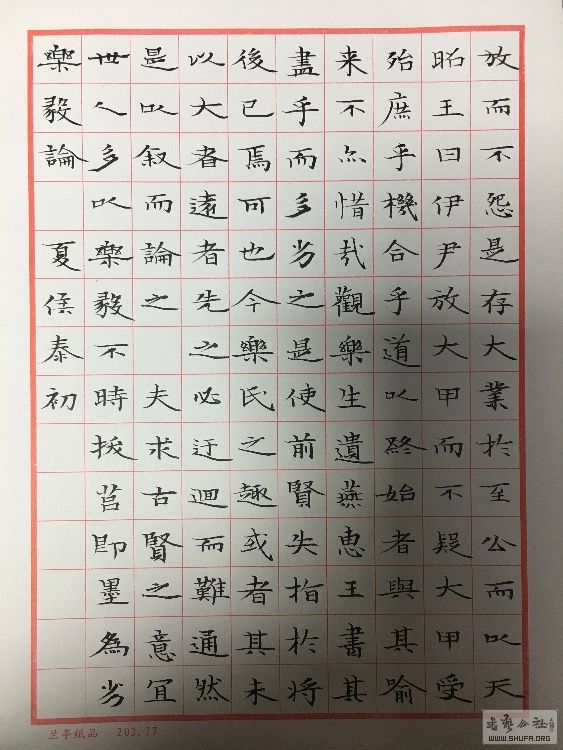 樂毅論 夏侯泰初
世人多以樂毅不時拔莒即墨為劣
是以叙而論之 夫求古賢之意宜
以大者遠者先之必迂迴而難通然
後已焉可也今樂氏之趣或者其未
盡乎而多劣之是使前賢失指於將
来不亦惜哉觀樂生遺燕惠王書其
殆庶乎機合乎道以終始者與其喻
昭王曰伊尹放大甲而不疑大甲受
放而不怨是存大業於至公而以天
兰亭纸品 202.77
书艺公社
WWW.SHUFA.ORG